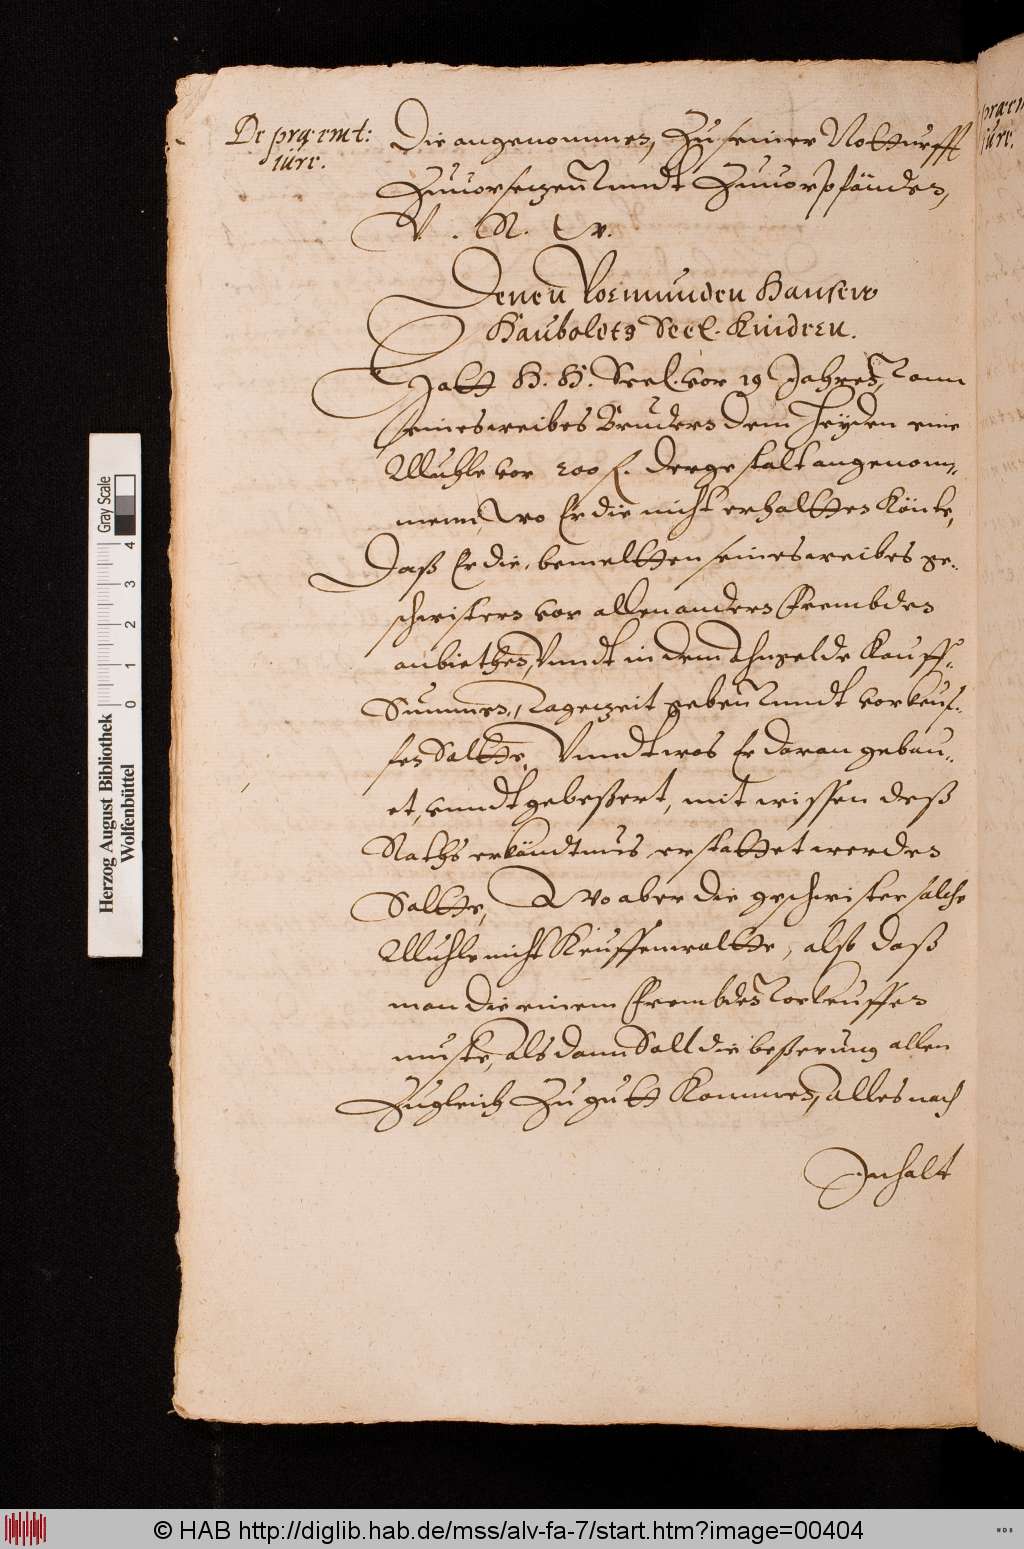 De præemt:
iure.
Die angenommen, Zu seiner Notturfft
Zuuorsetzen vnndt Zuuorpfänden,
V. R. W.
Denen Vormunden Hansen
Haubolets Seel. Kindren.
Hatt H. H. Seel. vor 19 Jahren, vonn
seines weibes Bruders dem Heyden eine
Muhle vor 200 f. dergestalt angenom„
menn, wo Er die nicht erhaltten Könte,
Daß Er die, bemeltten seines weibes ge„
schwistern vor allen andern Frembden
anbiethen, Vnndt in dem Angelde Kauff„
Summen, Tagezeit geben vnndt vorkeuf„
fen Soltte, Vnndt was Er daran gebau„
et, vnndt gebeßert, mit wissen deß
Raths erkändtnus erstattet werden
Soltte, Wo aber die geschwister solche
Muhle nicht Keuffen woltte, also daß
man die einem Frembden vorkeuffen
muste, als dann Soll die beßerung allen
Zugleich Zu gutt Kommen, alles nach
Inhalt
præem
iure.
Herzog August Bibliothek
Wolfenbüttel
0 1 2 3 4
Gray Scale
© HAB http://diglib.hab.de/mss/alv-fa-7/start.htm?image=00404